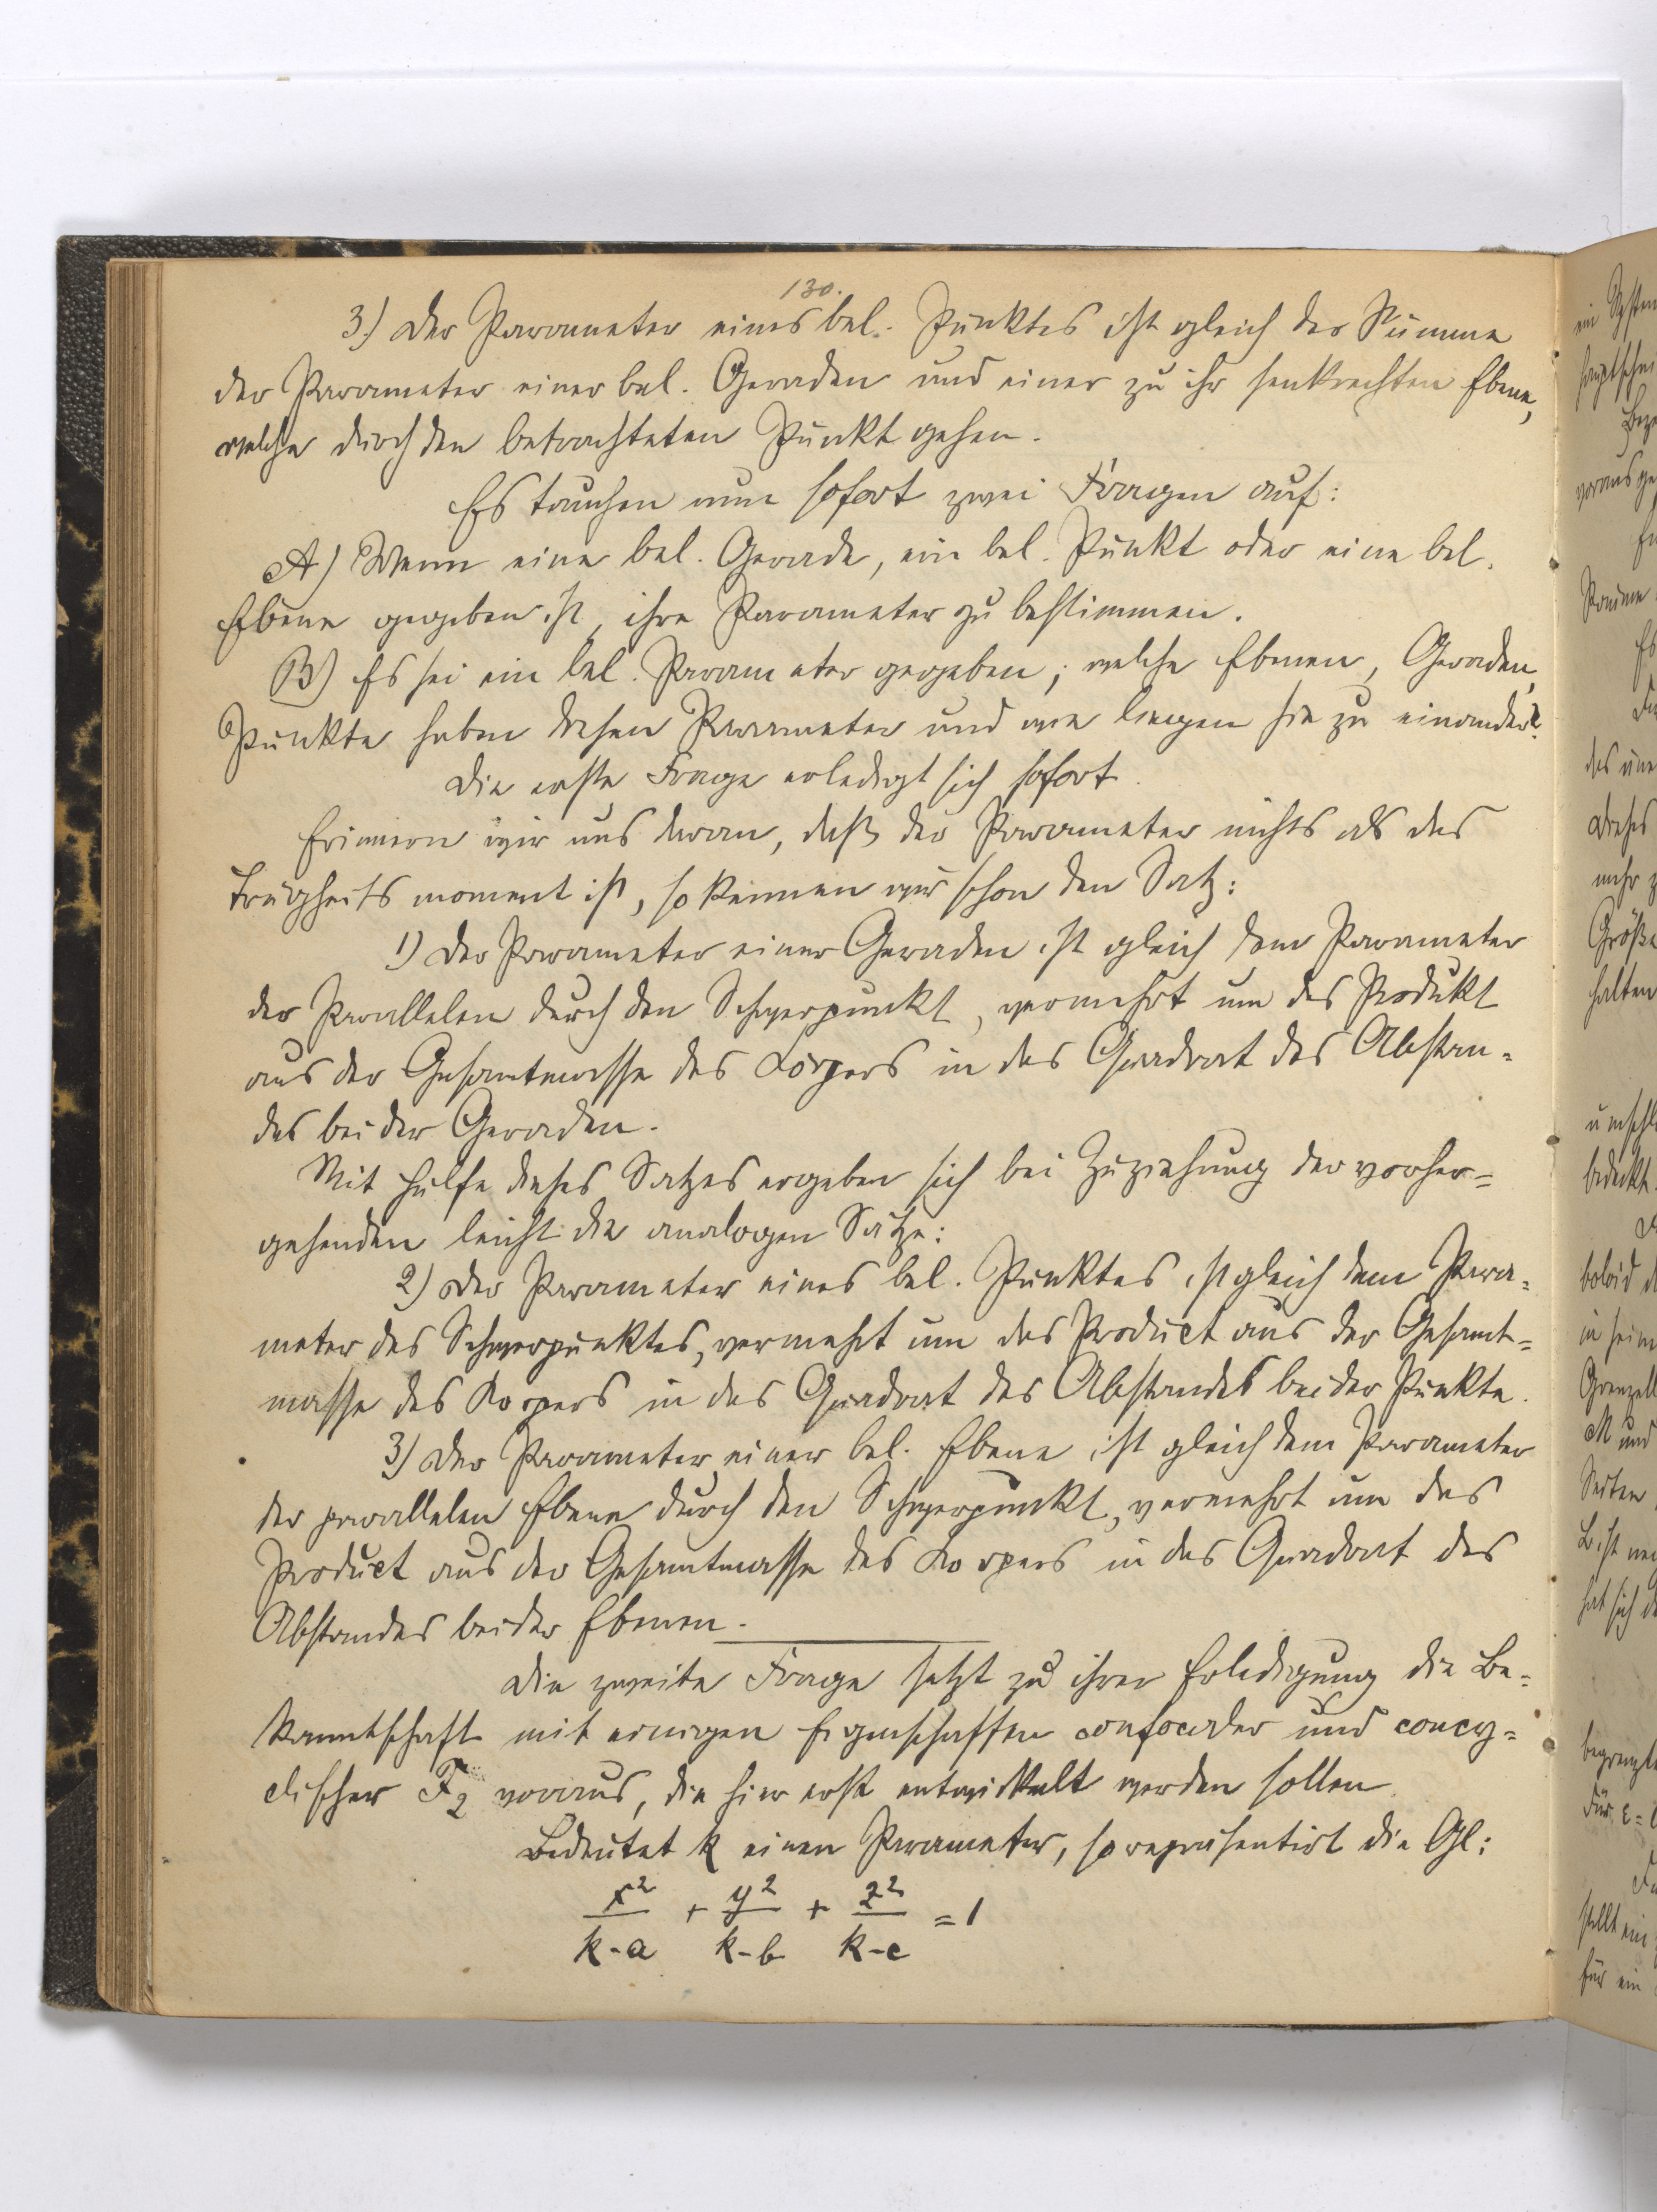 130.
3.) Der Parameter eines bel. Punktes ist gleich der Summe
der Parameter einer bel. Geraden und einer zu ihr senkrechten Ebene,
welche durch den betrachteten Punkt gehen.
Es tauchen nun sofort zwei Fragen auf:
A) Wenn eine bel. Gerade, ein bel. Punkt oder eine bel.
Ebene gegeben ist, ihre Parameter zu bestimmen.
B) Es sei ein bel. Parameter gegeben; welche Ebenen, Geraden,
Punkte haben diesen Parameter und wie liegen sie zu einander?
Die erste Frage erledigt sich sofort.
Erinnern wir uns daran, daß der Parameter nichts als das
Trägheitsmoment ist, so kennen wir schon den Satz:
1) Der Parameter einer Geraden ist gleich dem Parameter
der Parallelen durch den Schwerpunkt, vermehrt um das Produkt
aus der Gesamtmasse des Körpers in das Quadrat des Abstan-
des beider Geraden.
Mit Hülfe dieses Satzes ergeben sich bei Zuziehung der vorher-
gehenden leicht die analogen Sätze:
2) Der Parameter eines bel. Punktes ist gleich dem Para-
meter des Schwerpunktes, vermehrt um das Product aus der Gesamt-
masse des Körpers in das Quadrat des Abstandes beider Punkte.
3) Der Parameter einer bel. Ebene ist gleich dem Parameter
der parallelen Ebene durch den Schwerpunkt, vermehrt um das
Product aus der Gesamtmasse des Körpers in das Quadrat des
Abstandes beider Ebenen.
Die zweite Frage setzt zu ihrer Erledigung die Be-
kanntschaft mit einigen Eigenschaften confocaler und concy-
clischer F₂ voraus, die hier erst entwickelt werden sollen.
Bedeutet k einen Parameter, so repräsentirt die Gl:
x²/(k-a) + y²/(k-b) + z²/(k-c) = 1